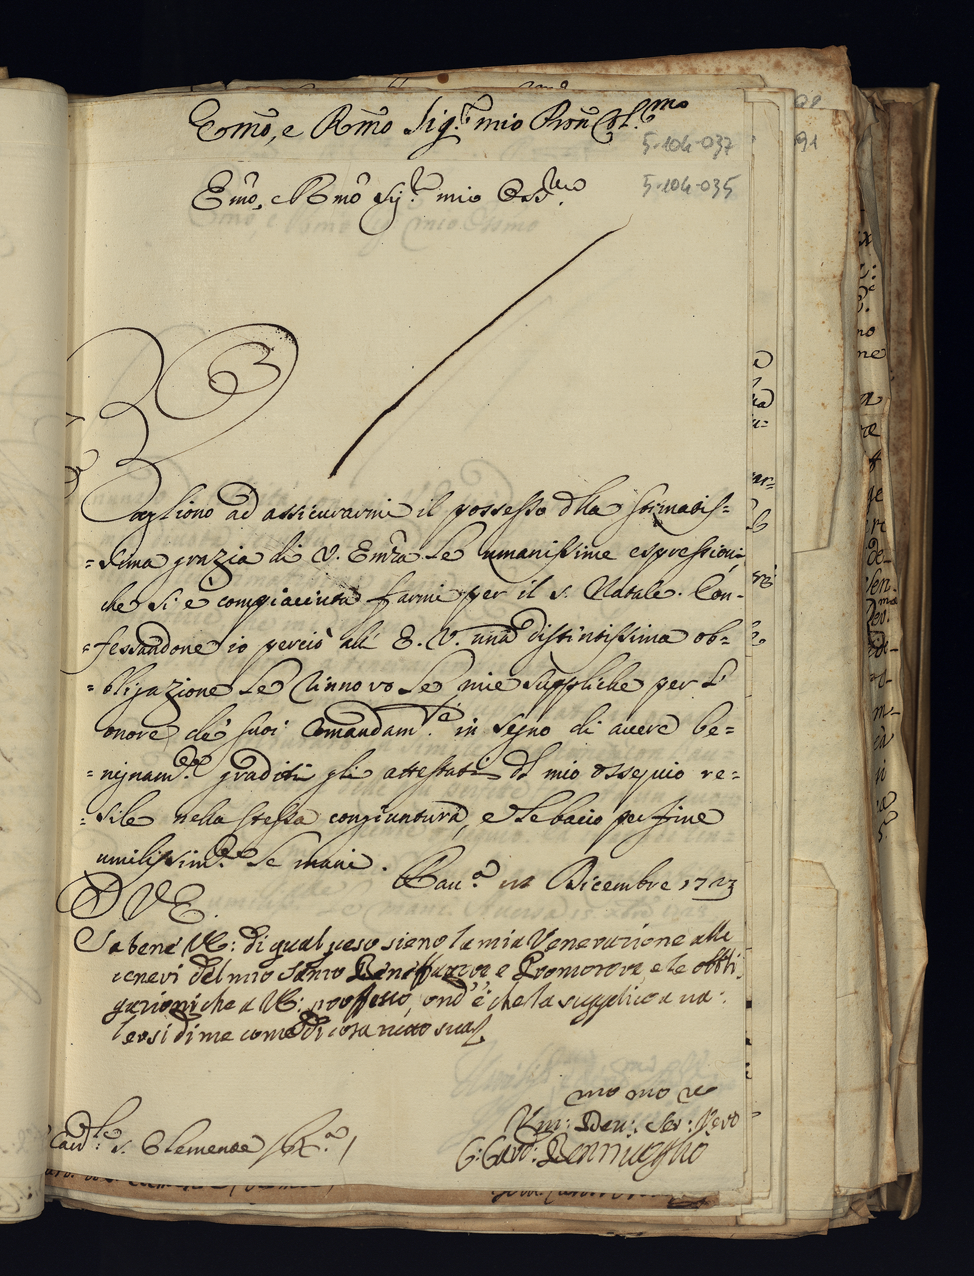 Emo, e Rmo Sig.r mio Pron Col.mo
5-104-037
Emo, e Rmo Sig.r mio Oss.mo
5-104-035
Vagliono ad assicurarmi il possesso della stimatis=
=sima grazia di V. Emza le umanissime espressioni
che si è compiacciuta farmi per il s. Natale. Con=
=fessandone io perciò all' E. V. una distintissima ob=
=bligazione Le rinnovo le mie suppliche per l'
onore de' suoi Comandam.ti in segno di avere be=
=nignam.te graditi gli attestati del mio ossequio re=
=sile nella stessa congiuntura, e le bacio per fine
umilissim.te le mani.
Rau.a Dicembre 1723
D V E.
Sa bene V E: di qual peso sieno la mia Venerazione alle
ceneri del mio Santo Benefattore e Promotore e le obbli
gazioni che a V E: professo, ond'è che la supplico a va:
lersi di me come di cosa tutta sua
Um: Dev: Ser: Vero
Card.le s. Clemente
G: Card: Bentivoglio